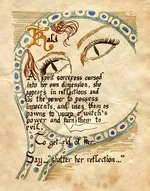 Kali
An evil sorceress cursed
into her own dimension, she
appears in reflections and
has the power to possess
innocents, and uses them as
pawns to usurp a witch's
power and turn them to
evil.
To get rid of her:
Say... "shatter her reflection..."